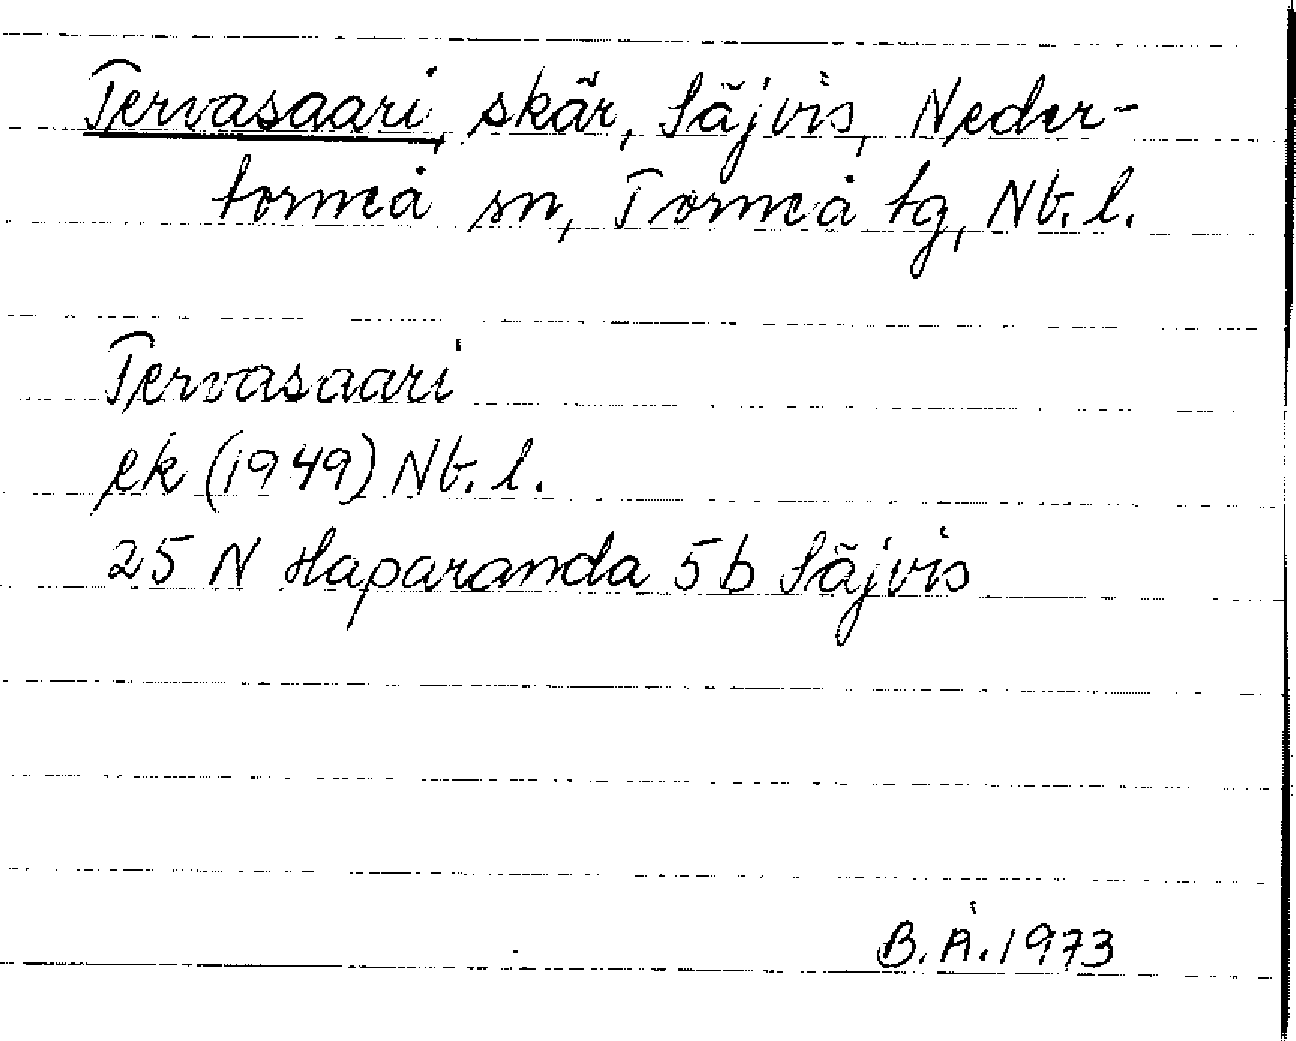 Tervasaari, skär, Säjvis, Neder-
torneå sn, Torneå tg, Nb. l.
Tervasaari
ek (1949) Nb. l.
25 N Haparanda 5b Säjvis
B.Å.1973